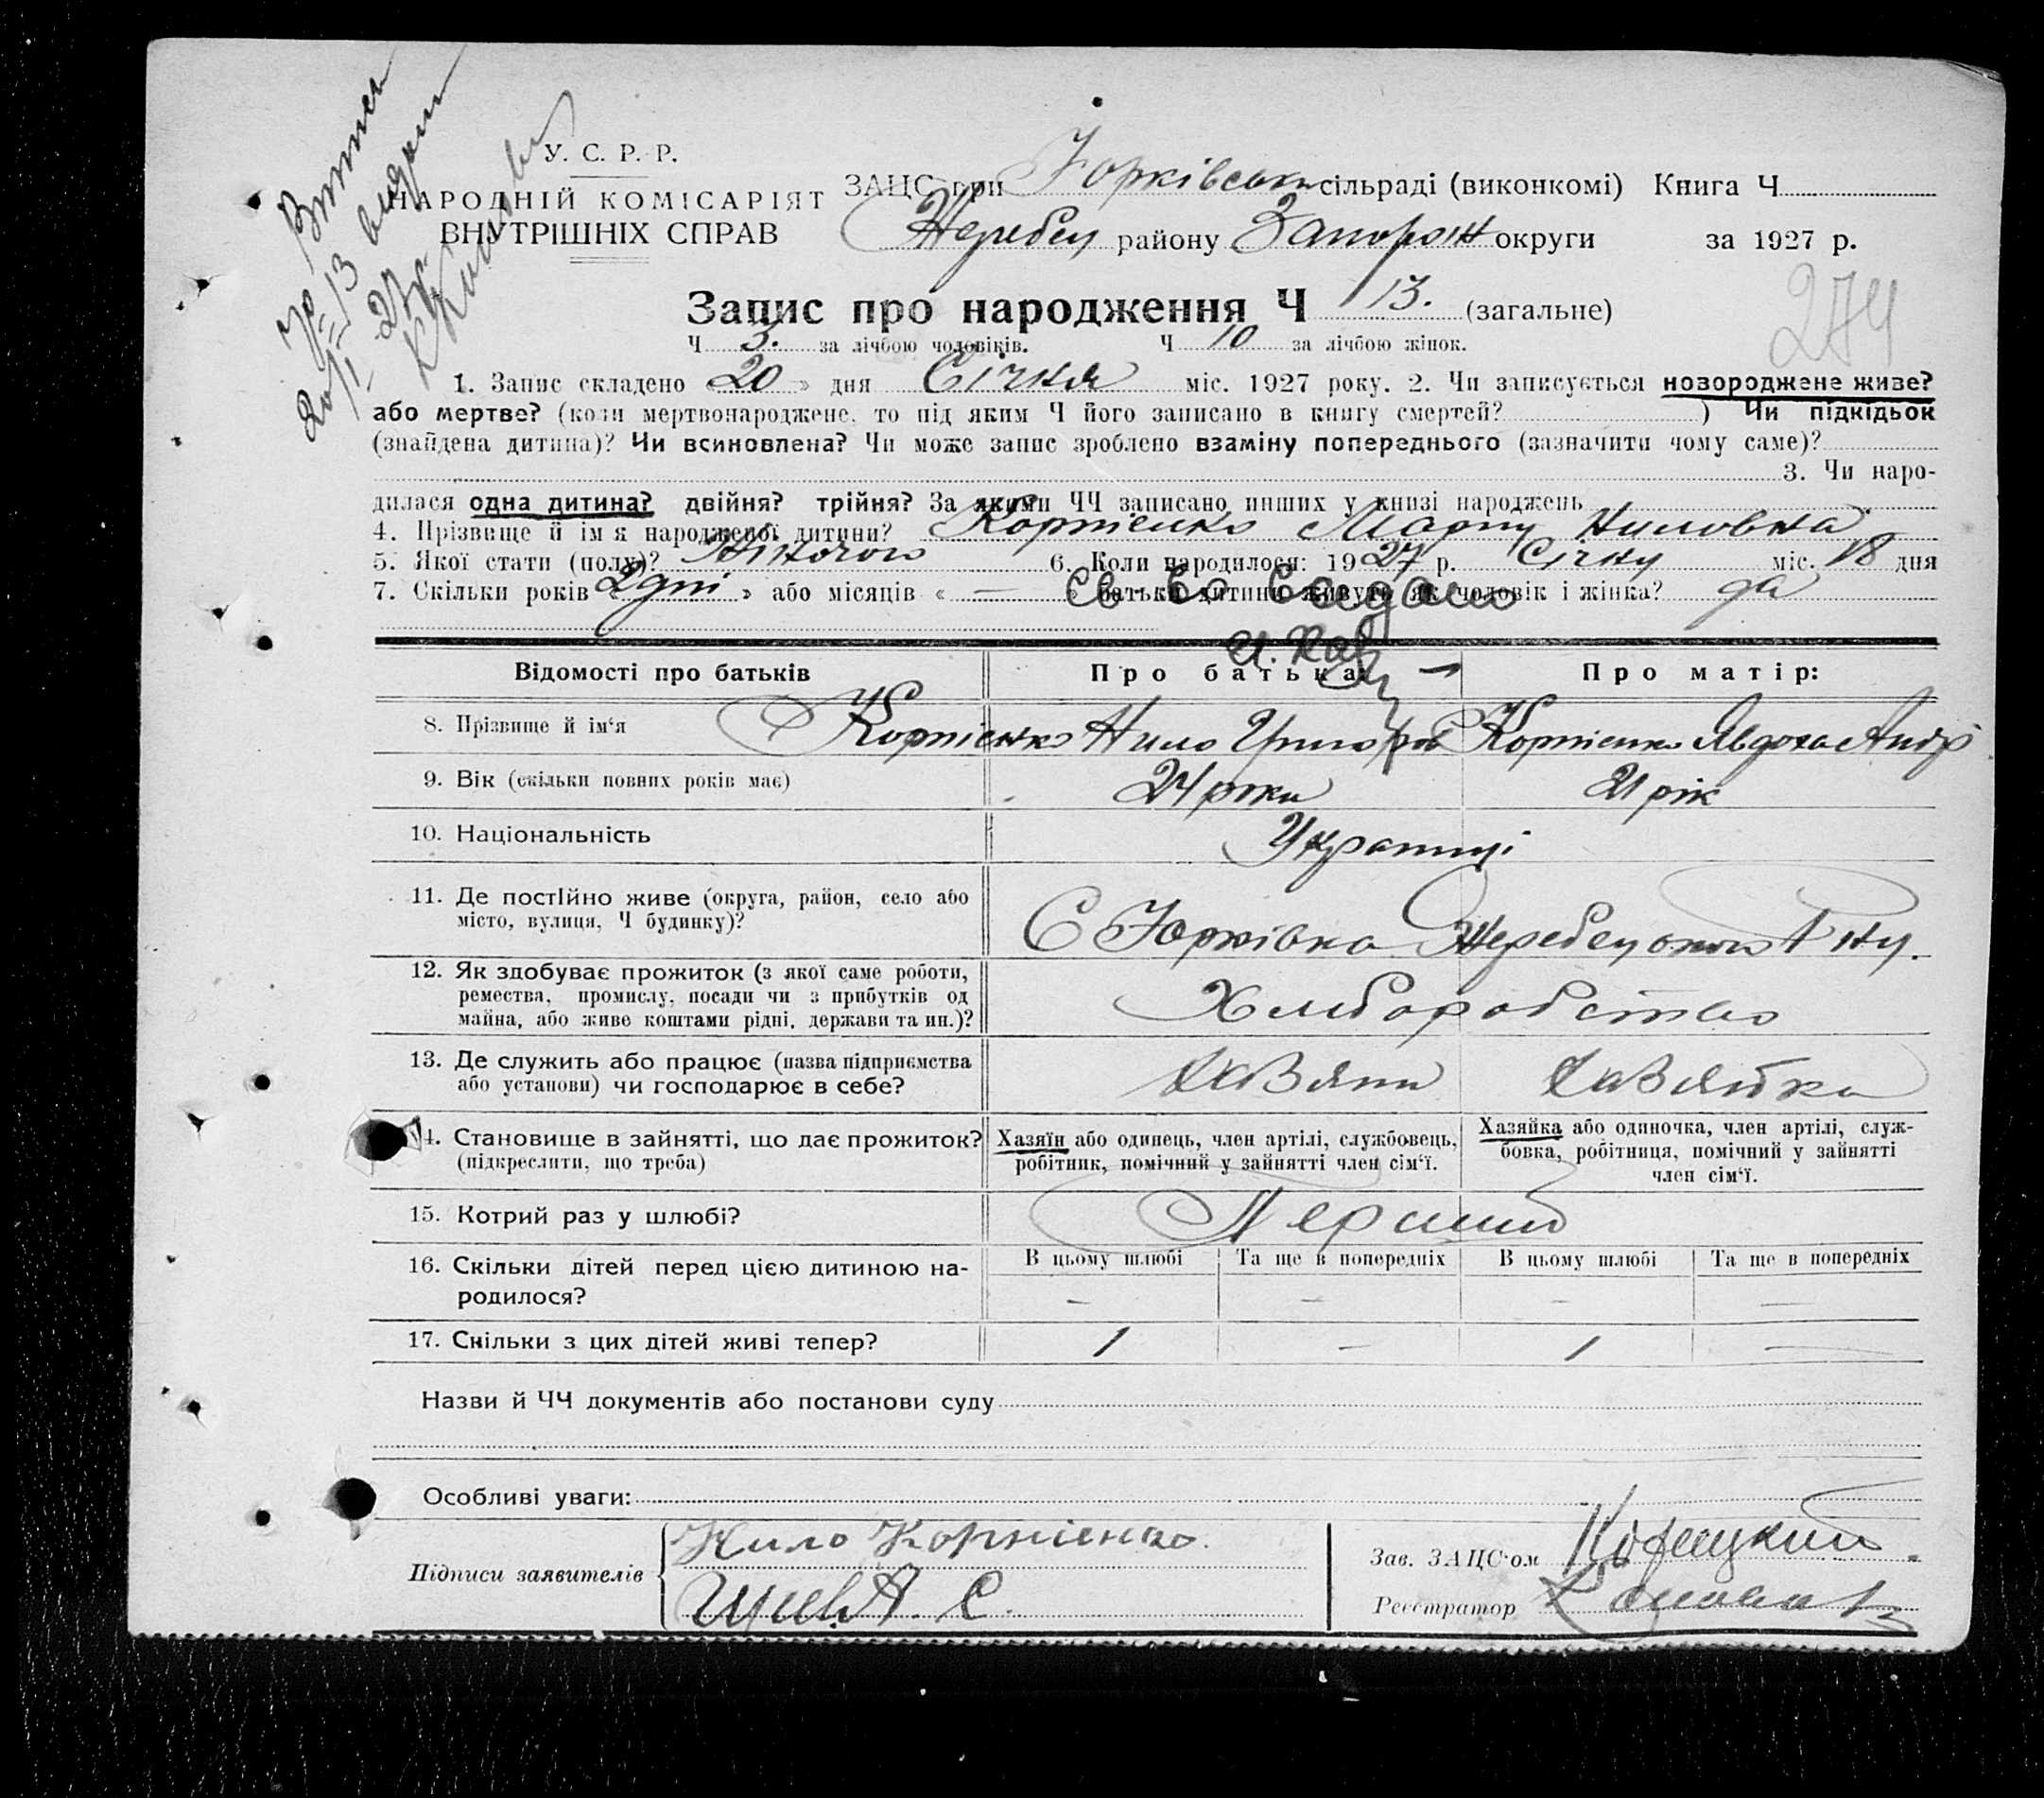 У. С. Р. Р.
НАРОДНІЙ КОМІСАРІЯТ
ВНУТРІШНІХ СПРАВ
Витяг
№ 13 видан
20/I – 27 р.
ЗАЦС при Юрківськи сільраді (виконкомі) Книга Ч
Жеребец району Запорож округи за 1927 р.
274
Запис про народження Ч 13. (загальне)
Ч 3. за лічбою чоловіків. Ч 10 за лічбою жінок.
1. Запис складено 20 » дня Січня міс. 1927 року. 2. Чи записується новороджене живе?
або мертве? (коли мертвонароджене, то під яким Ч його записано в книгу смертей? ) Чи підкідьок
(знайдена дитина)? Чи всиновлена? Чи може запис зроблено взаміну попереднього (зазначити чому саме)?
3. Чи наро-
дилася одна дитина? двійня? трійня? За якими ЧЧ записано инших у книзі народжень
4. Прізвище й ім'я народженої дитини? Корнієнко Марпу Ниловна
5. Якої стати (полу)? Жіночого 6. Коли народилося: 1927 р. Січну міс. 18 дня
7. Скільки років 2 дні » або місяців « — » батьки дитини живуть як чоловік і жінка? да
Св-во выдано
Відомості про батьків Про батька: Про матір:
8. Прізвище й ім'я Корнієнко Нило Григоров Корнієнко Явдоха Андр
9. Вік (скільки повних років має) 24 роки 21 рік
10. Національність Українці
11. Де постійно живе (округа, район, село або
місто, вулиця, Ч будинку)? С Юрківка Жеребецького Р ну.
12. Як здобуває прожиток (з якої саме роботи,
ремества, промислу, посади чи з прибутків од
майна, або живе коштами рідні, держави та ин.)? Хліборобство
13. Де служить або працює (назва підприємства
або установи) чи господарює в себе? Хазяин Хазяйка
14. Становище в зайнятті, що дає прожиток?
(підкреслити, що треба)
Хазяїн або одинець, член артілі, службовець,
робітник, помічний у зайнятті член сім'ї.
Хазяйка або одиночка, член артілі, служ-
бовка, робітниця, помічний у зайнятті
член сім'ї.
15. Котрий раз у шлюбі? Перший
16. Скільки дітей перед цією дитиною на-
родилося?
В цьому шлюбі Та ще в попередніх В цьому шлюбі Та ще в попередніх
– – – —
17. Скільки з цих дітей живі тепер? 1 — 1 —
Назви й ЧЧ документів або постанови суду
Особливі уваги:
Підписи заявителів
Нило Корнієнко.
Зав. ЗАЦС'ом
Реєстратор